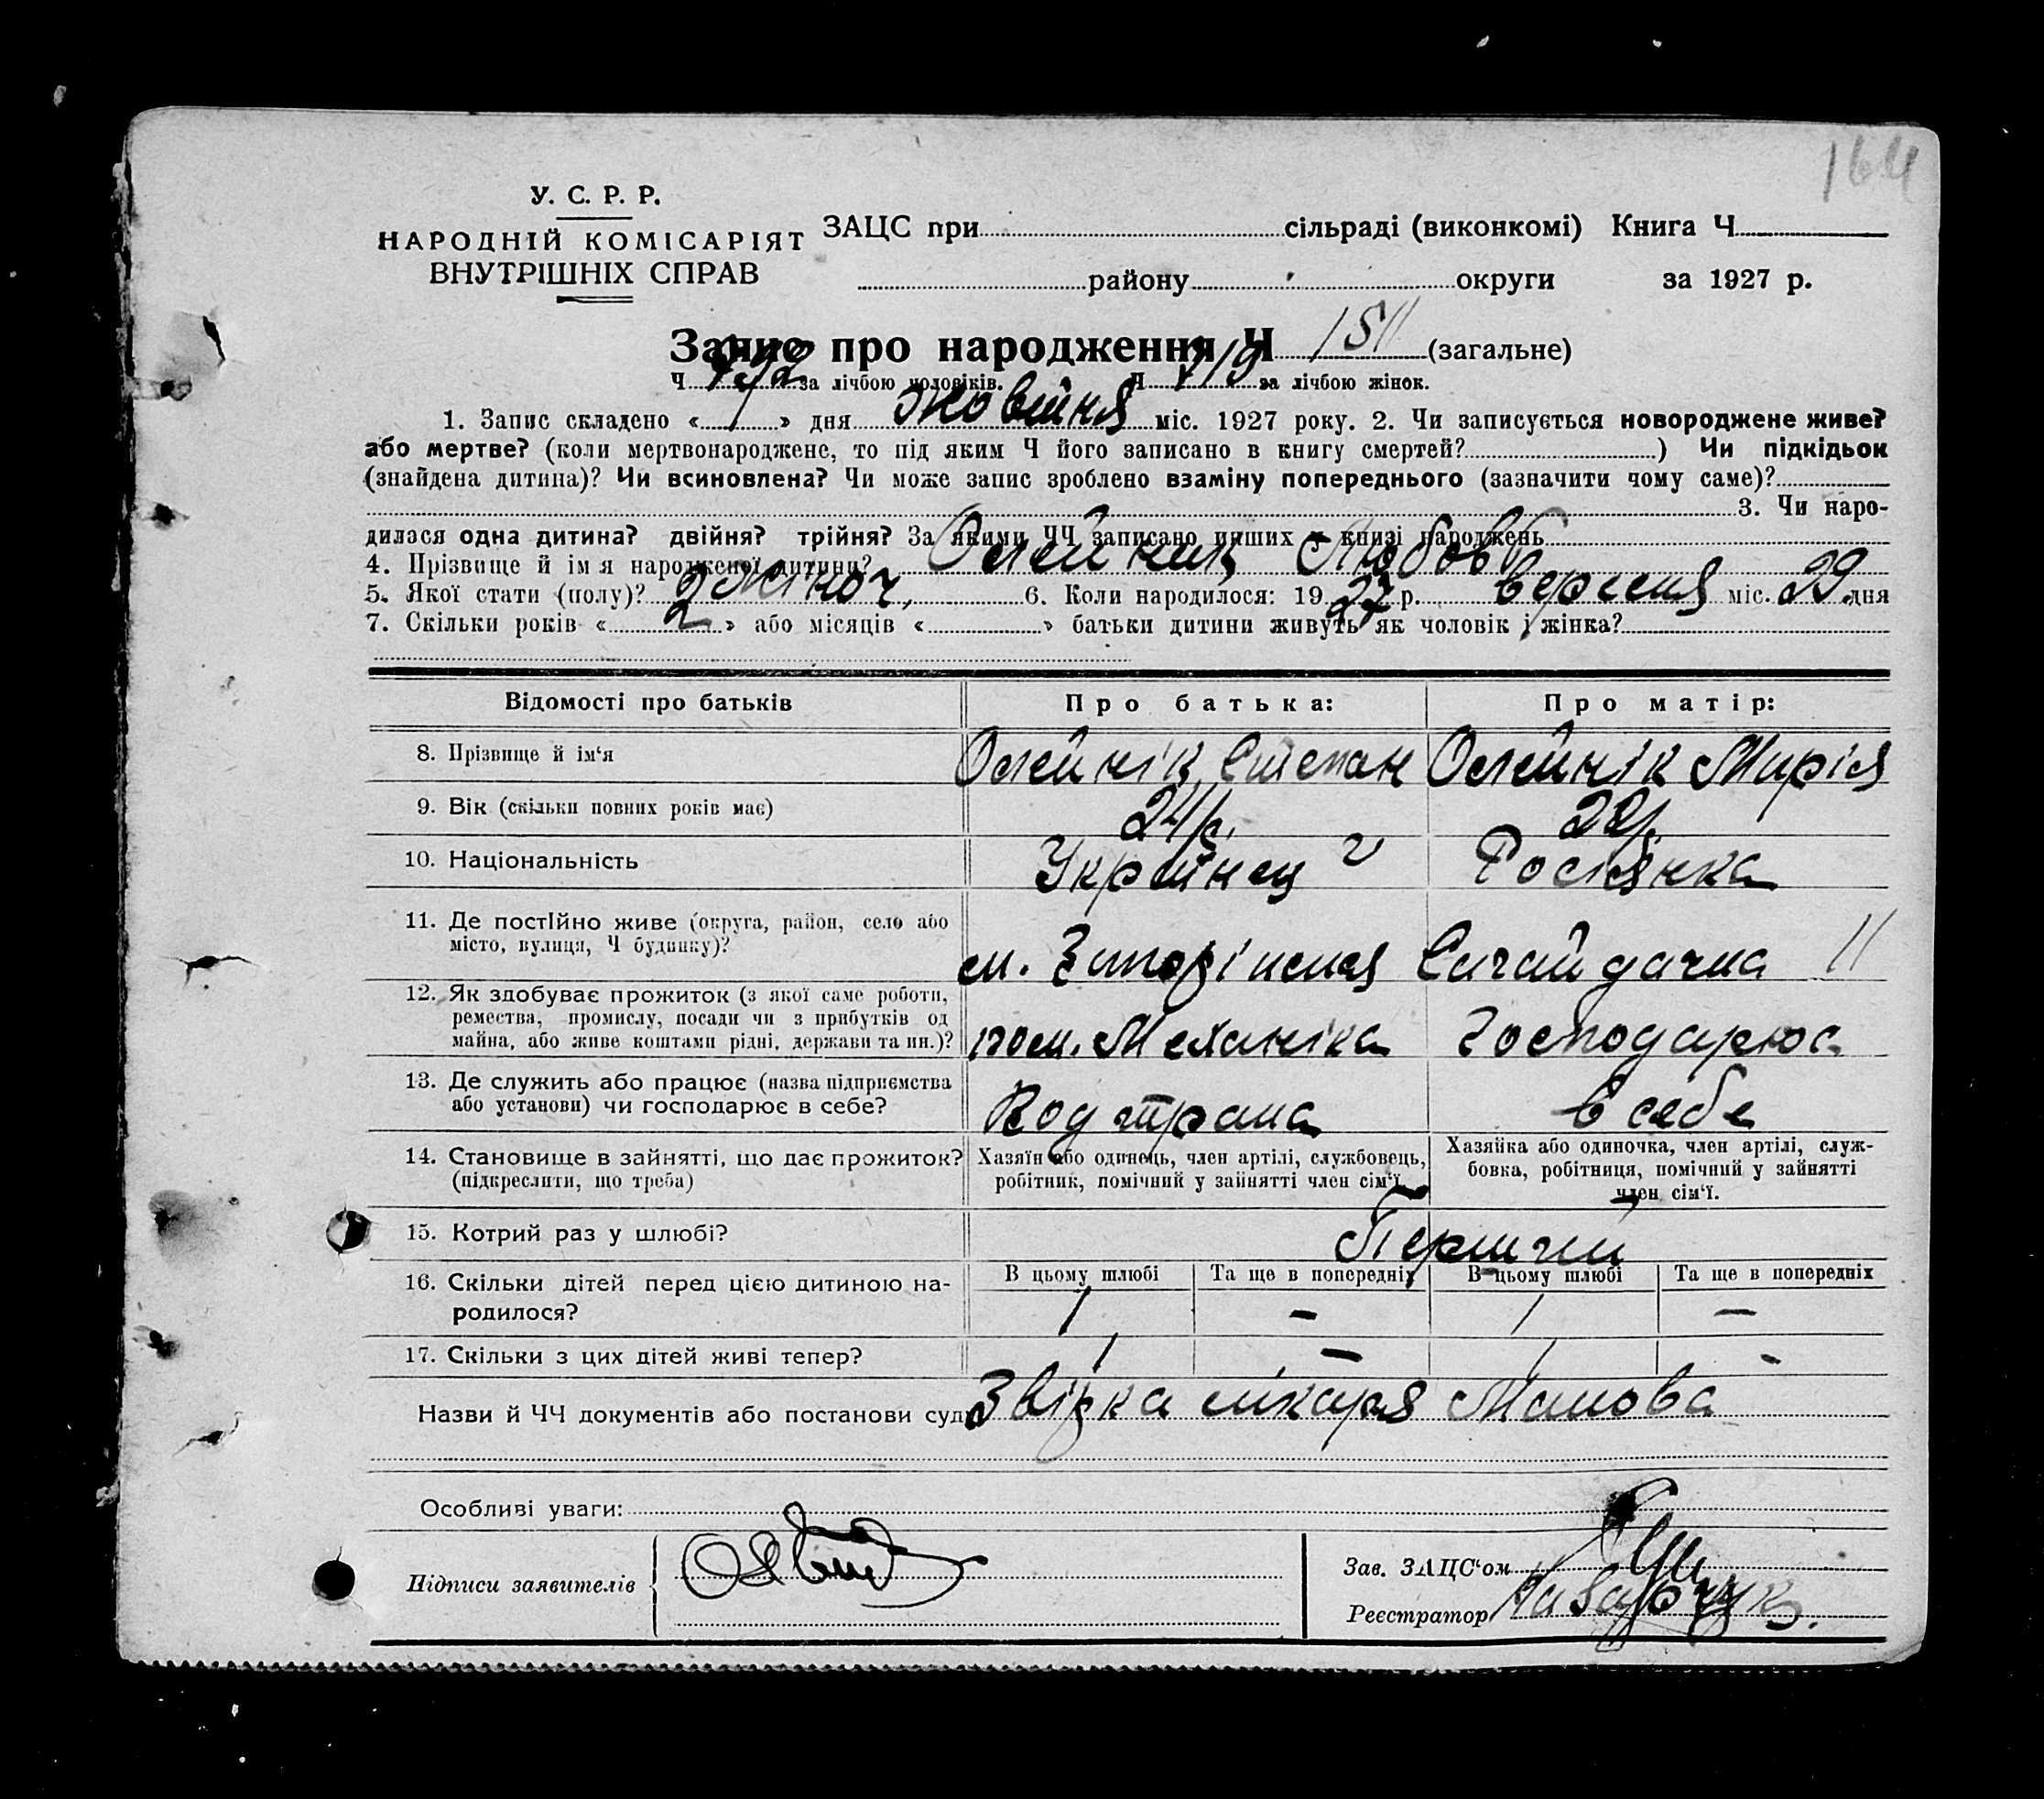 164
У. С. Р. Р.
НАРОДНІЙ КОМІСАРІЯТ
ВНУТРІШНІХ СПРАВ
ЗАЦС при сільраді (виконкомі) Книга Ч
району округи за 1927 р.
Запис про народження Ч 1511 (загальне)
Ч 792 за лічбою чоловіків. Ч 719 за лічбою жінок.
1. Запис складено « 1 » дня Жовтня міс. 1927 року. 2. Чи записується новороджене живе?
або мертве? (коли мертвонароджене, то під яким Ч його записано в книгу смертей? ) Чи підкідьок
(знайдена дитина)? Чи всиновлена? Чи може запис зроблено взаміну попереднього (зазначити чому саме)?
3. Чи наро-
дилася одна дитина? двійня? трійня? За якими ЧЧ записано инших в книзі народжень
4. Прізвище й ім'я народженої дитини? Олейник Любовь
5. Якої стати (полу)? жіноч. 6. Коли народилося: 1927 р. вересня міс. 29 дня
7. Скільки років « 2 » або місяців « » батьки дитини живуть як чоловік і жінка?
Відомості про батьків Про батька: Про матір:
8. Прізвище й ім'я Олейнік Степан Олейнік Марія
9. Вік (скільки повних років має) 24 р. 22 р.
10. Національність Українец Росіянка
11. Де постійно живе (округа, район, село або
місто, вулиця, Ч будинку)? м. Запоріжжя Сагайдачна 11
12. Як здобуває прожиток (з якої саме роботи,
ремества, промислу, посади чи з прибутків од
майна, або живе коштами рідні, держави та ин.)? пом. Механіка Господарює
13. Де служить або працює (назва підприємства
або установи) чи господарює в себе? в себе
14. Становище в зайнятті, що дає прожиток?
(підкреслити, що треба)
Хазяїн або одинець, член артілі, службовець,
робітник, помічний у зайнятті член сім'ї.
Хазяйка або одиночка, член артілі, служ-
бовка, робітниця, помічний у зайнятті
член сім'ї.
15. Котрий раз у шлюбі? Перший
16. Скільки дітей перед цією дитиною на-
родилося?
В цьому шлюбі Та ще в попередніх В цьому шлюбі Та ще в попередніх
1 – 1 –
17. Скільки з цих дітей живі тепер? 1 – 1 -
Назви й ЧЧ документів або постанови суду Звідка лікаря
Особливі уваги:
Підписи заявителів
Зав. ЗАЦС'ом
Реєстратор